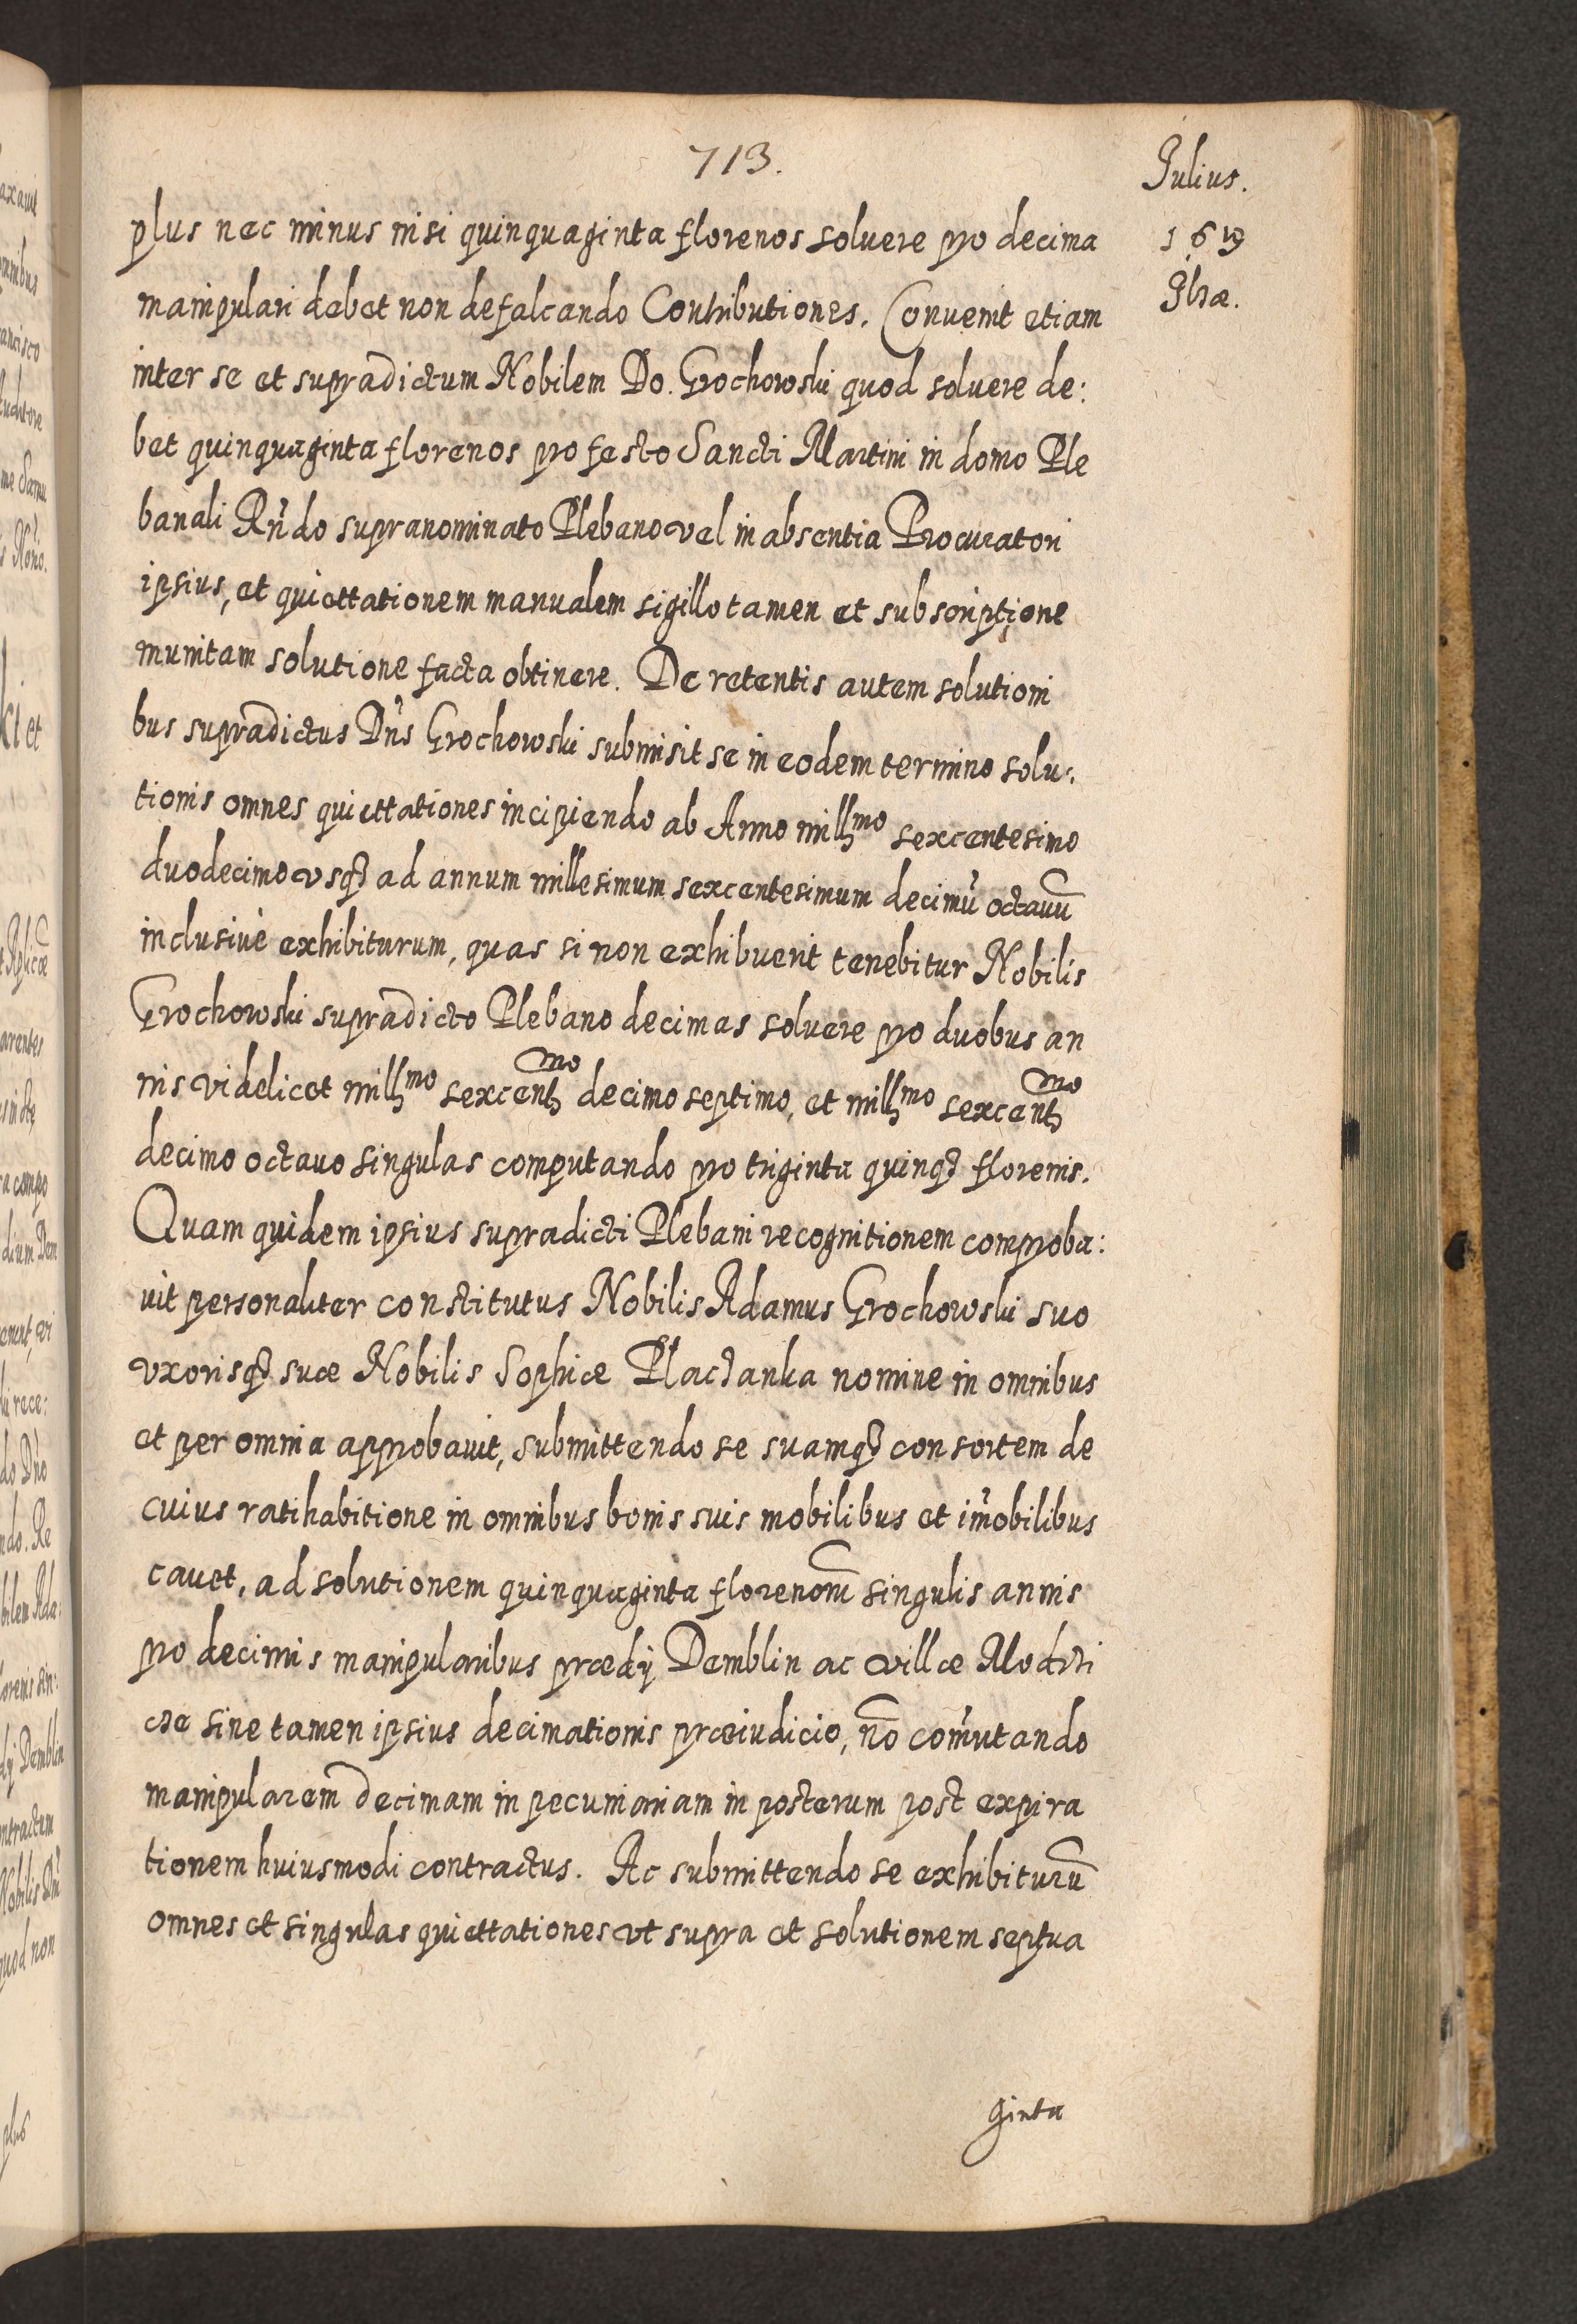 713.
Julius.
1619
plus nec minus nisi quinquaginta florenos soluere pro decima
manipulari debet non defalcando Contributiones. Convenit etiam
inter se et supradictum Nobilem Do. Grochowski quod soluere de:
bet quinquaginta florenos pro festo Sancti Martini in domo Ple
banali Rñdo supranominato Plebano vel in absentia Procuratori
ipsius, et quiettationem manualem sigillo tamen et subscriptione
munitam solutione facta obtinere. De retentis autem solutioni
bus supradictus Dñs Grochowski submisit se in eodem termino solu:
tionis omnes quiettationes incipiendo ab Anno millmo sexcentesimo
duodecimo vsq3 ad annum millesimum sexcentesimum decimũ octauũ
inclusiuè exhibiturum, quas si non exhibuerit tenebitur Nobilis
Grochowski supradicto Plebano decimas soluere pro duobus an
nis videlicet millmo sexcentmo decimo septimo, et millmo sexcentmo
decimo octauo singulas computando pro triginta quinq3 florenis.
Quam quidem ipsius supradicti Plebani recognitionem comproba:
uit personaliter constitutus Nobilis Adamus Grochowski suo
vxorisq3 suæ Nobilis Sophiæ Placzanka nomine in omnibus
et per omnia approbauit, submittendo se suamq3 consortem de
cuius ratihabitione in omnibus bonis suis mobilibus et im̃obilibus
cauet, ad solutionem quinquaginta florenorũ singulis annis
pro decimis manipularibus prædij Demblin ac villæ Modrzi
cze sine tamen ipsius decimationis præiudicio, nõ com̃utando
manipularem decimam in pecuniariam in posterum post expira
tionem huiusmodi contractus. Ac submittendo se exhibiturũ
omnes et singulas quiettationes vt supra et solutionem septua
ginta